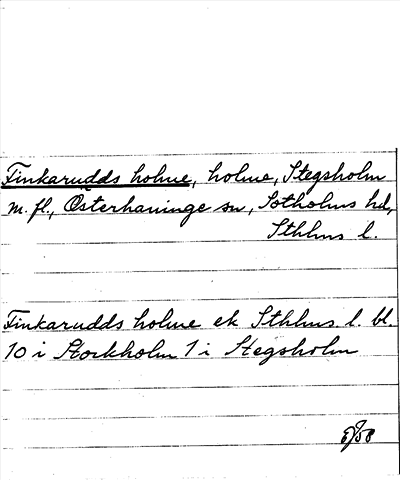 Finkarudds holme, holme, Stegsholm
m. fl., Österhaninge sn, Sotholms hd,
Sthlms l.
Finkarudds holme ek Sthlms. l. bl.
10 i Stockholm 1 i Stegsholm